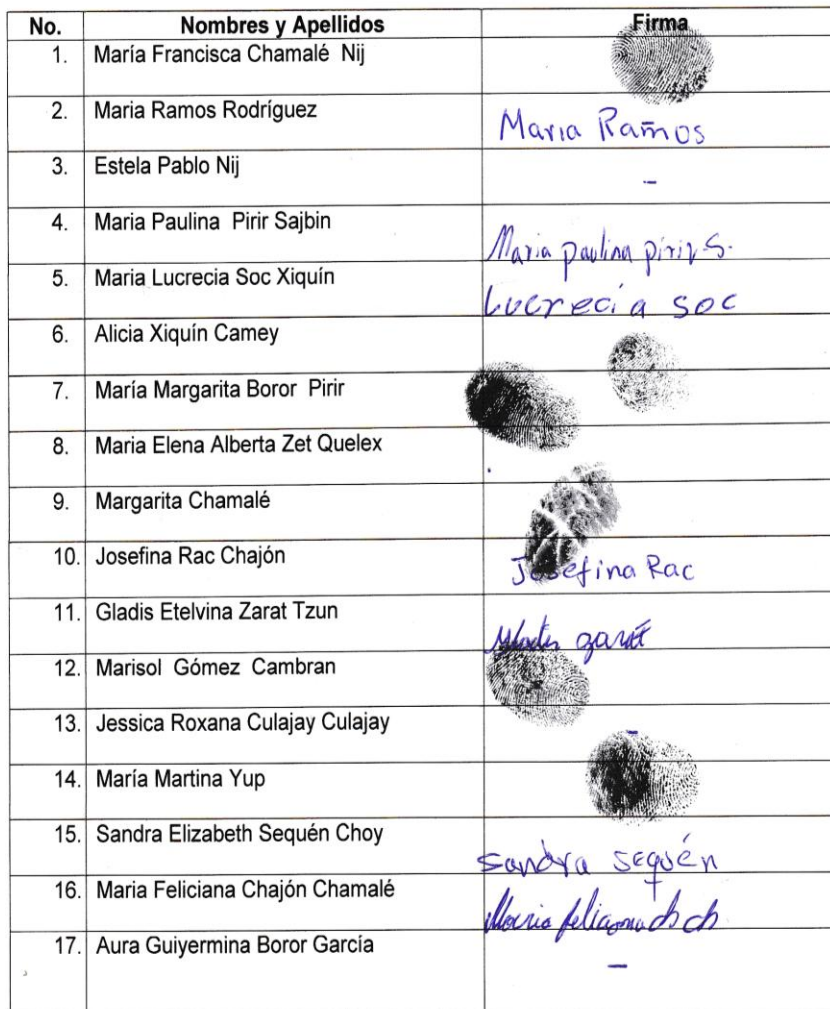 No. Nombres y Apellidos Firma
1. María Francisca Chamalé Nij
2. Maria Ramos Rodríguez Maria Ramos
3. Estela Pablo Nij -
4. Maria Paulina Pirir Sajbin Maria paulina pirir S.
5. Maria Lucrecia Soc Xiquín Lucrecia soc
6. Alicia Xiquín Camey
7. María Margarita Boror Pirir
8. Maria Elena Alberta Zet Quelex
9. Margarita Chamalé
10. Josefina Rac Chajón Josefina Rac
11. Gladis Etelvina Zarat Tzun zarat
12. Marisol Gómez Cambran
13. Jessica Roxana Culajay Culajay -
14. María Martina Yup
15. Sandra Elizabeth Sequén Choy Sandra sequén
16. Maria Feliciana Chajón Chamalé Maria feliciana ch ch
17. Aura Guiyermina Boror García -